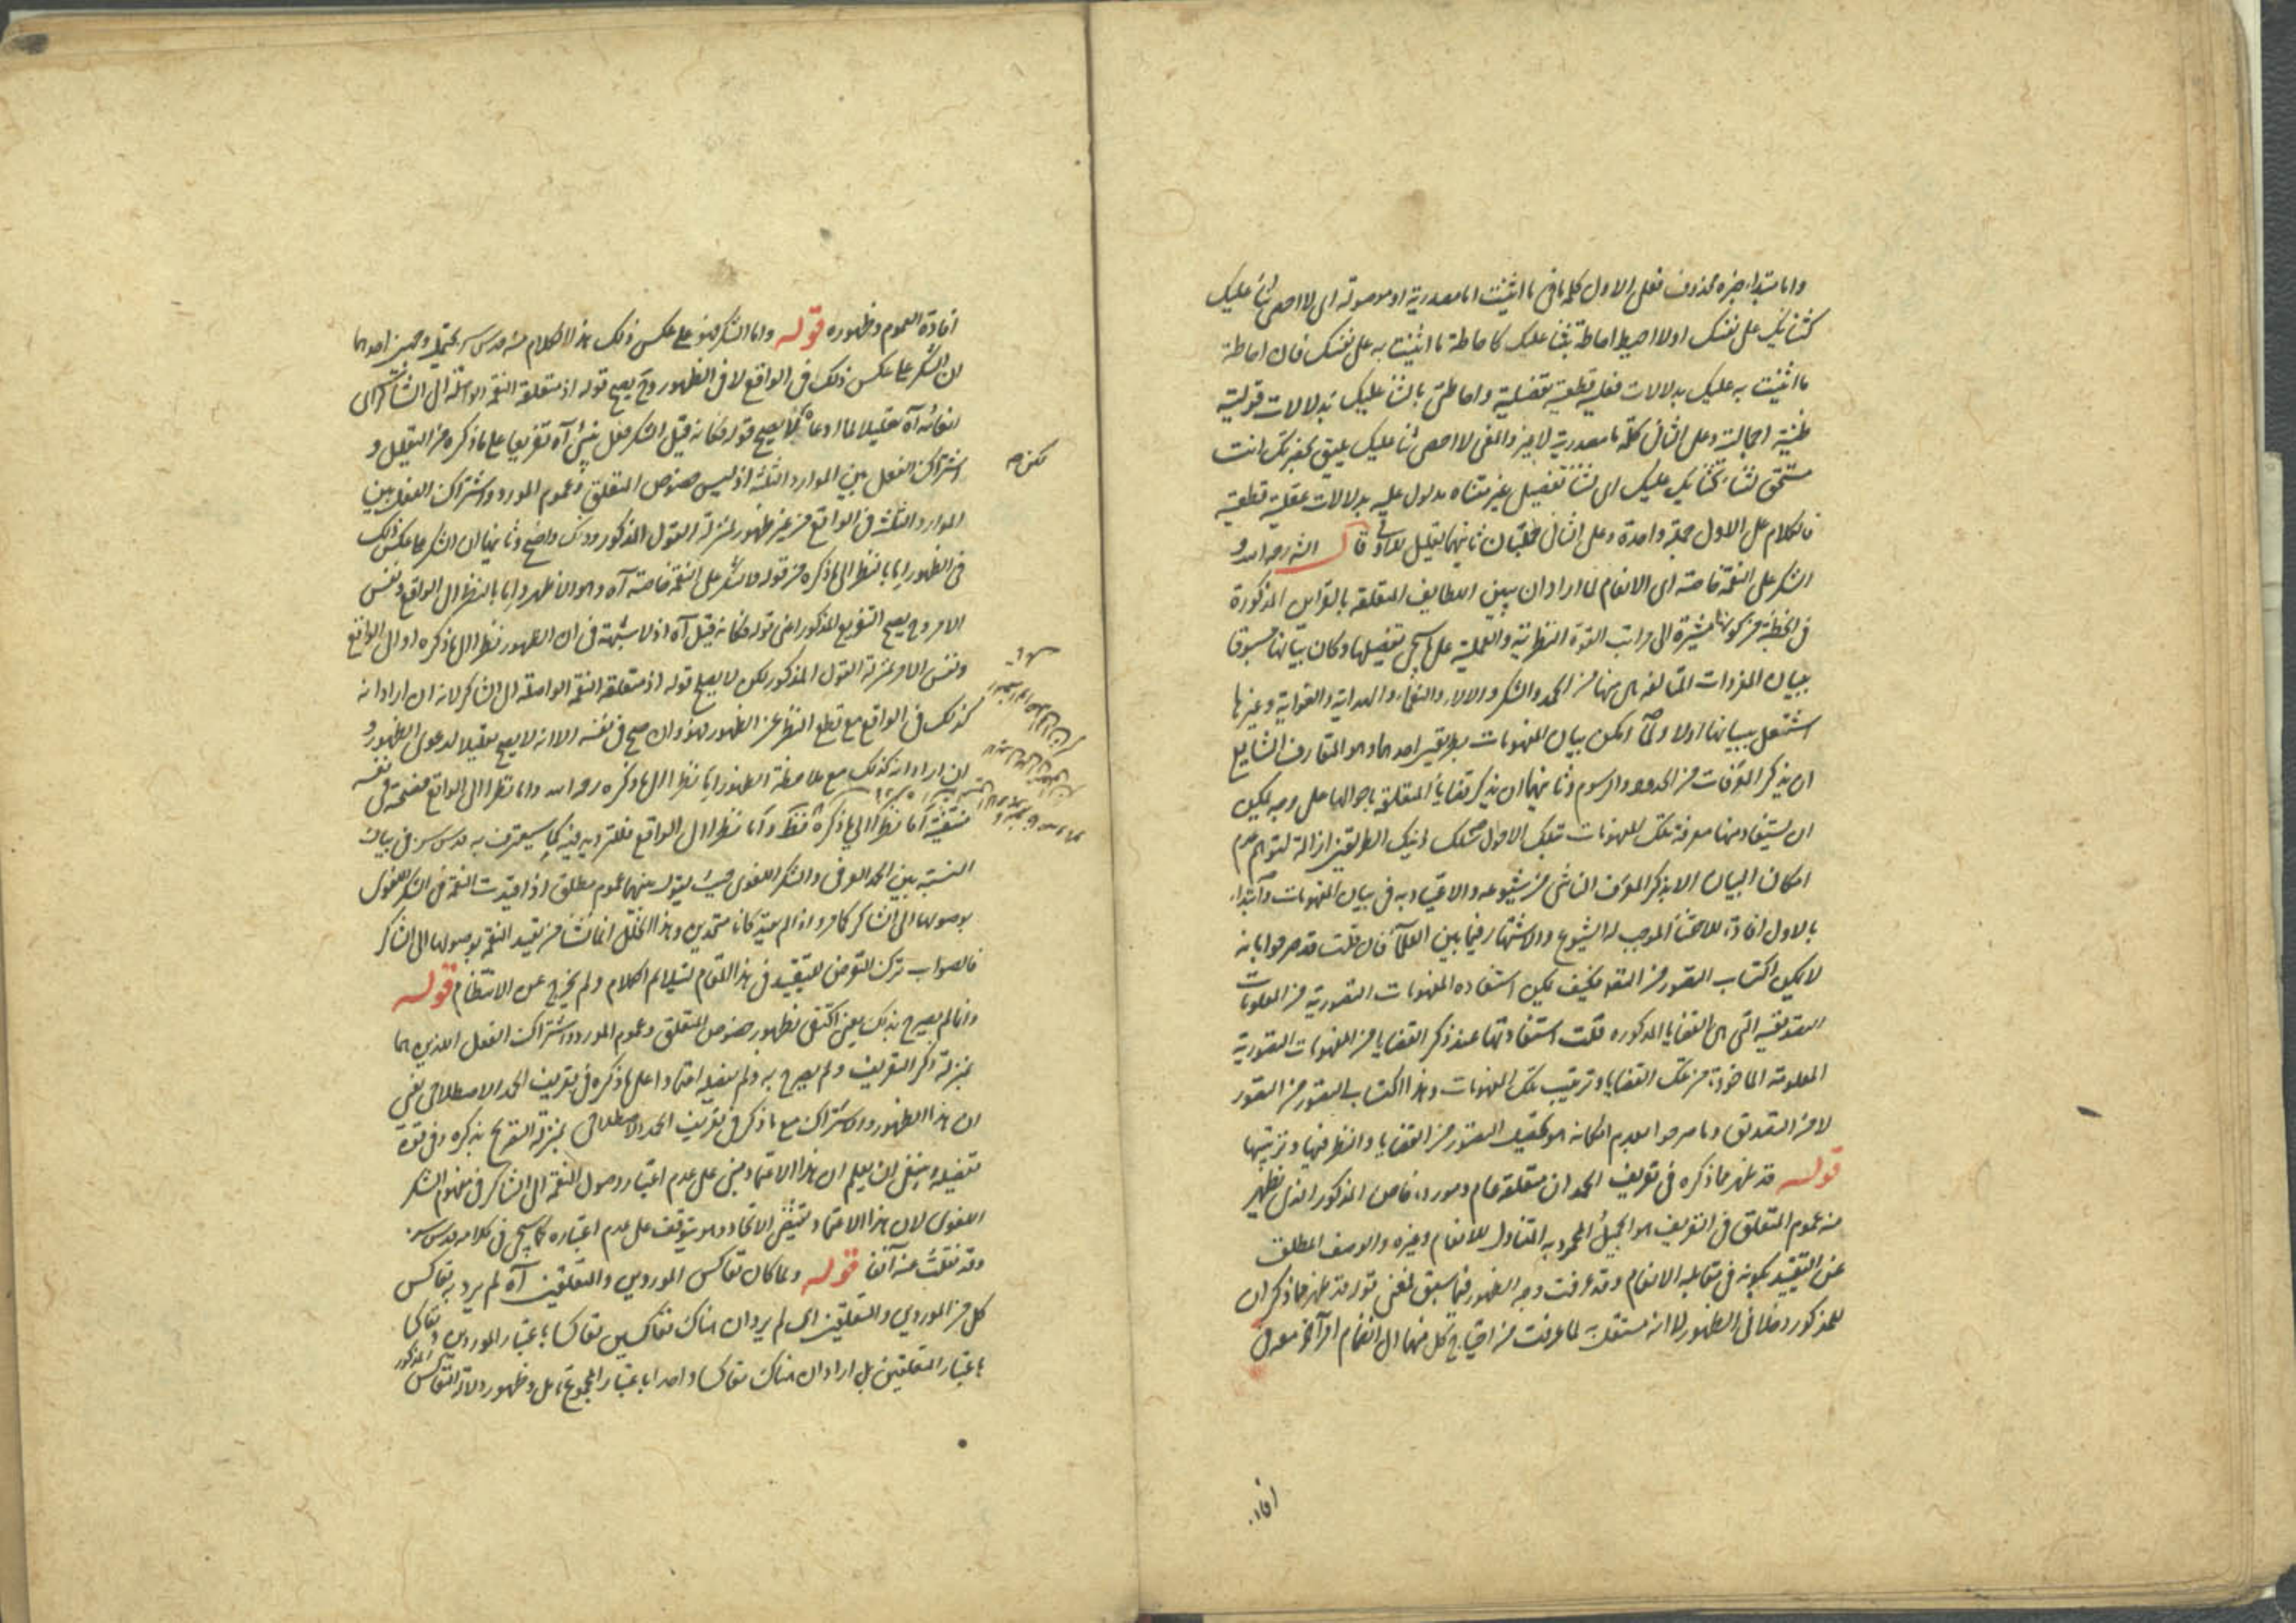 واما مبتداء خبره محذوف فعلى الاول كلمة ما فى ما اثنيت اما مصدرية او موصولة اى لا احصى ثناء عليك
كثنائك على نفسك اولا احيط احاطة بثناء عليك كاحاطة ما اثنيت به على نفسك فان احاطة
ما اثنيت به عليك بدلالات فعلية قطعية تفصيلية واحاطتى بالثناء عليك بدلالات قولية
ظنية اجمالية وعلى الثانى كلمة ما مصدرية لا غير والمعنى لا احصى ثناء عليك يليق بحضرتك انت
مستحق لثناء كثنائك عليك اى لثناء تفصيلى غير متناه مدلول عليه بدلالات عقلية قطعية
فالكلام على الاول جملة واحدة وعلى الثانى جملتان ثانيهما تعليل للاولى قال الش رحمه الله و
الشكر على النعمة خاصة اى الانعام لما اراد ان يبين اللطايف المتعلقة بالقراين المذكورة
فى الخطبة من كونها مشيرة الى مراتب القوة النظرية والعملية على ما سيجى تفصيلها وكان بيانها مسبوقا
ببيان المفردات منها من الحمد والشكر والالاء والنعماء والهداية والغواية وغيرها
اشتغل ببيانها اولا ولما امكن بيان المفهومات بطريقين احدهما وهو المتعارف الشايع
ان يذكر المعرفات من الحدود والرسوم وثانيهما ان يذكر قضايا المتعلقة باحوالها على وجه يمكن
ان يستفاد منها معرفة تلك المفهومات بتلك الاحوال سلك ذينك الطريقين ازالة لتوهم عدم
امكان البيان الا بذكر المعرف الناشى من شيوعه والاعتياد به فى بيان المفهومات وابتداء
بالاول الموجب له الشيوع والاشتهار فيما بين العلماء فان قلت قد صرحوا بانه
لا يمكن اكتساب التصور من التصديق فكيف يمكن استفاده المفهومات التصورية من المعلومات
التصديقية التى هى القضايا المذكوره قلت استفادتها عند ذكر القضايا من المفهومات التصورية
المعلومة الماخوذة من تلك القضايا وترتيب تلك المفهومات وهذا اكتساب التصور من التصور
لا من التصديق وما صرحوا بعدم امكانه هو تحصيل التصور من القضايا والنظر فيها وترتيبها
قوله قد ظهر مما ذكره فى تعريف الحمد ان متعلقه عام ومورده خاص المذكور الذى يظهر
منه عموم المتعلق فى التعريف هو الجميل المحمود به المتناول للانعام وغيره والوصف المطلق
عن التقييد بكونه فى مقابلة الانعام وقد عرفت وجه الظهور فيما سبق فمعنى قوله قد ظهر مما ذكر ان
للمذكور دخلا فى الظهور لا انه مستقل به لما عرفت من احتياج كل منهما الى انضمام امر آخر معه فى
افاد
افادة العموم وظهوره قوله واما الشكر فهو على عكس ذلك هذا الكلام منه قدس سره يحتمل وجهين احدهما
ان الشكر على عكس ذلك فى الواقع لا فى الظهور وح يصح قوله اذ متعلقه النعمة الواصلة الى الشاكر الى
آه تعليلا لما ادعاه لكن لا يصح قوله فكانه قيل الشكر فعل ينبئ آه تفريعا على ما ذكره من التعليل و
اشتراك الفعل بين الموارد الثلثة اذ ليس خصوص المتعلق وعموم المورد واشتراك الفعل بين
الموارد الثلثة فى الواقع من غير ظهور بمنزلة القول المذكور وذلك واضح وثانيهما ان الشكر على عكس ذلك
فى الظهور اما بالنظر الى ما ذكره من قوله والشكر على النعمة خاصة آه وهو الاظهر واما بالنظر الى الواقع ونفس
الامر وح يصح التفريع المذكور اعنى قوله فكانه قيل آه اذ لا شبهة فى ان الظهور نظرا الى ما ذكره او الى الواقع
ونفس الامر بمنزلة القول المذكور لكن لا يصح قوله اذ متعلقه النعمة الواصلة الى الشاكر لانه ان اراد انه
كذلك فى الواقع مع قطع النظر عن الظهور فهو وان صح فى نفسه الا انه لا يصح تعليلا لدعوى الظهور و
ان اراد انه كذلك مع ملاحظة الظهور اما نظرا الى ما ذكره رحمه الله واما نظرا الى الواقع فصحته فى نفسه
منتفية اما نظرا الى ما ذكره فقط واما نظرا الى الواقع فلما سيعترف به قدس سره فى بيان
النسبة بين الحمد العرفى والشكر اللغوى حيث يقول بينهما عموم مطلق اذا قيدت النعمة فى الشكر اللغوى
بوصولها الى الشاكر كما مر واذا لم يقيد كانا متحدين وهذا الخلل انما نشأ من تقييد النعمة بوصولها الى الشاكر
فالصواب ترك التعرض للتقييد فى هذا المقام ليتلائم الكلام ولم يخرج عن الانتظام قوله
وانما لم يصرح بذلك يعنى اكتفى بظهور خصوص المتعلق وعموم المورد واشتراك الفعل اللذين هما
بمنزلة ذكر التعريف ولم يصرح به ولم يفصله اعتمادا على ما ذكره فى تعريف الحمد الاصطلاحى يعنى
ان هذا الظهور والاشتراك مع ما ذكر فى تعريف الحمد الاصطلاحى بمنزلة التصريح بذكره وفى قوة
تفصيله وينبغى ان يعلم ان هذا الاعتماد مبنى على عدم اعتبار وصول النعمة الى الشاكر فى مفهوم الشكر
اللغوى لان هذا الاعتماد يقتضى الاتحاد وهو يتوقف على عدم اعتباره كما سيجى فى كلامه قدس سره
وقد نقلت عنه آنفا قوله ولما كان تعاكس الموردين والمتعلقين آه لم يرد به تعاكس
كل من الموردين والمتعلقين اى لم يرد ان هناك تعاكسين تعاكسا باعتبار الموردين وتعاكسا
باعتبار المتعلقين بل اراد ان هناك تعاكسا واحدا باعتبار المجموع تامل وظهور دلالة التعاكس المذكور
لكن ص